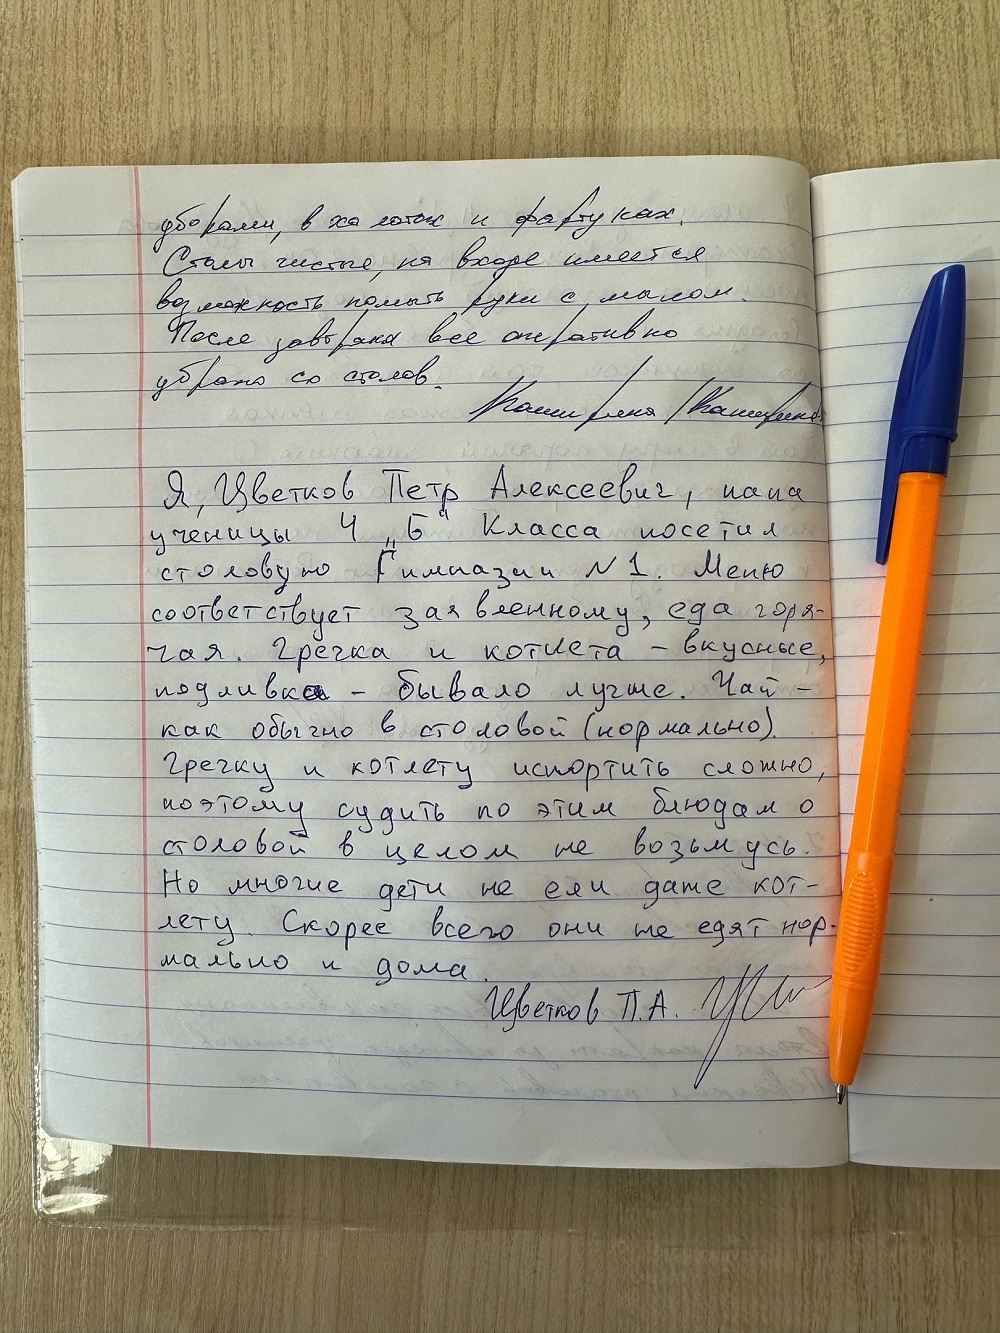 уборами, в халатах и фартуках.
Столы чистые, на входе имеется
возможность помыть руки с мылом.
После завтрака все оперативно
убрано со столов.
Каширина /Каширина
Я, Цветков Петр Алексеевич, папа
ученицы 4 „Б" класса посетил
столовую Гимназии №1. Меню
соответствует заявленному, еда горя-
чая. Гречка и котлета – вкусные,
подливка – бывало лучше. Чай –
как обычно в столовой (нормально).
Гречку и котлету испортить сложно,
поэтому судить по этим блюдам о
столовой в целом не возьмусь.
Но многие дети не ели даже кот-
лету. Скорее всего они не едят нор-
мально и дома.
Цветков П.А.